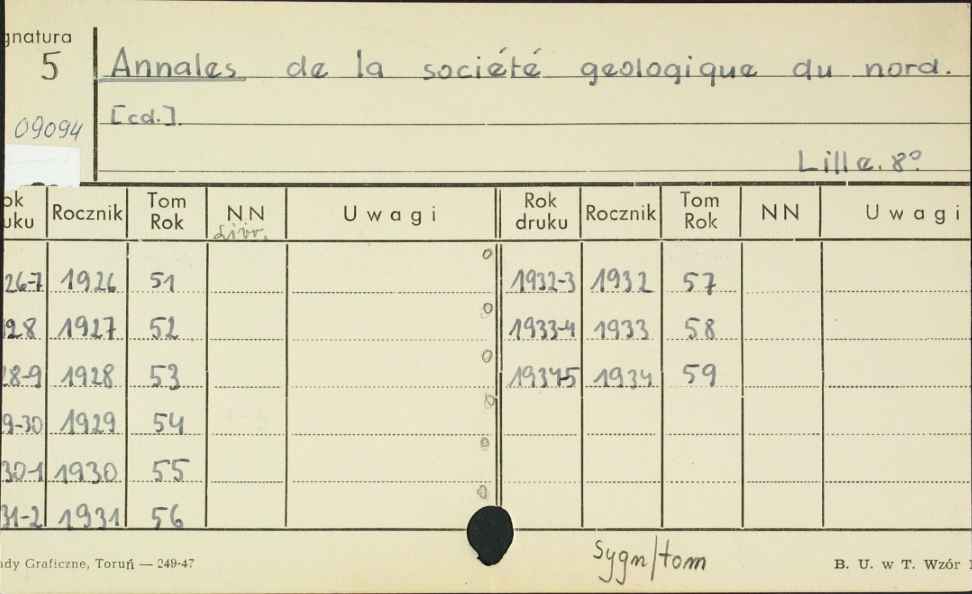 gnatura
5 Annales de la société geologique du nord.
09094 [cd.].
Lille. 8°
ok uku Rocznik Tom Rok NN Uwagi Rok druku Rocznik Tom Rok NN Uwagi
26-7 1926 51 1932-3 1932 57
928 1927 52 1933-4 1933 58
28-9 1928 53 1934-5 1934 59
9-30 1929 54
30-1 1930 55
31-2 1931 56
Sygn/tom
dy Graficzne, Toruń — 249-47 B. U. w T. Wzór